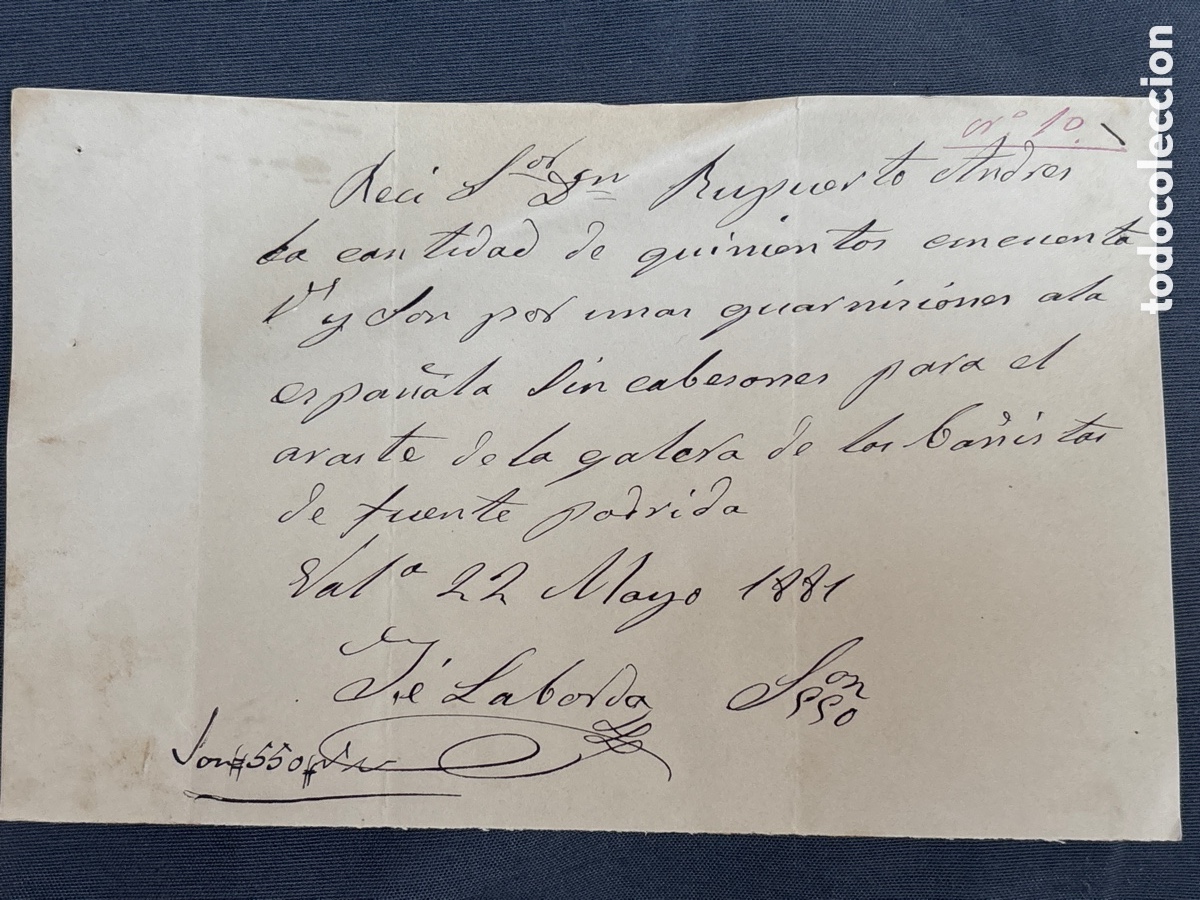 nº 10
Reci Sor Dn Rupuerto Andres
la cantidad de quinientos cincuenta
rs y son por unas guarnisiones ala
española sin cabesones para el
araste de la galera de los Bañistas
de fuente podrida
Vala 22 Mayo 1881
Jé Laborda Son 550
Son #550#
todocoleccion